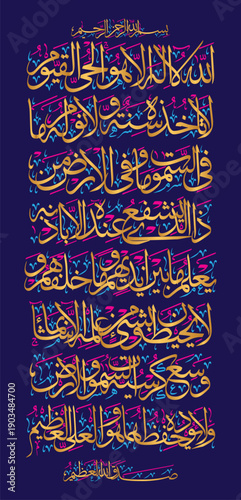 بسم الله الرحمن الرحيم
الله لا إله إلا هو الحي القيوم
لا تأخذه سنة ولا نوم له ما
في السموات وما في الأرض من
ذا الذي يشفع عنده إلا بإذنه
يعلم ما بين أيديهم وما خلفهم و
لا يحيطون بشيء من علمه إلا بما شاء
وسع كرسيه السموات والأرض
ولا يؤده حفظهما وهو العلي العظيم
صدق الله العظيم
Adobe Stock | #1903484700